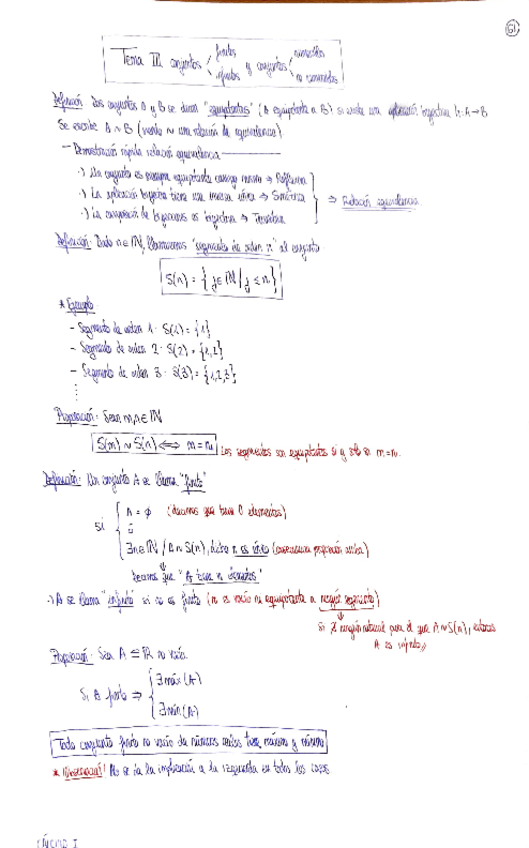 61
Tema III. conjuntos finitos infinitos y conjuntos numerables no numerables
Definición: Dos conjuntos A y B se dicen "equipotentes" (A equipotente a B) si existe una aplicación biyectiva h: A → B
Se escribe A ∼ B (siendo ∼ una relación de equivalencia)
— Demostración rápida relación equivalencia —
·) Un conjunto es siempre equipotente consigo mismo ⇒ Reflexiva
·) La aplicación biyectiva tiene una inversa única ⇒ Simétrica
⇒ Relación equivalencia
·) La composición de biyecciones es biyectiva ⇒ Transitiva
Definición: Dado n ∈ ℕ, llamaremos "segmento de orden n" al conjunto
S(n) = { j ∈ ℕ / j ≤ n }
* Ejemplo
- Segmento de orden 1 · S(1) = {1}
- Segmento de orden 2 · S(2) = {1,2}
- Segmento de orden 3 · S(3) = {1,2,3}
⋮
Proposición: Sean m,n ∈ ℕ
S(m) ∼ S(n) ⟺ m = n Los segmentos son equipotentes si y sólo si m = n.
Definición: Un conjunto A se llama "finito"
A = ∅ (decimos que tiene 0 elementos)
si ó
∃ n ∈ ℕ / A ∼ S(n), dicho n es único (consecuencia proposición arriba)
decimos que "A tiene n elementos"
·) A se llama "infinito" si no es finito (ni es vacío ni equipotente a ningún segmento)
si ∄ ningún natural para el que A ∼ S(n), entonces
A es infinito
Proposición: Sea A ⊆ ℝ no vacío
∃ máx(A)
Si A finito ⇒
∃ mín(A)
Todo conjunto finito no vacío de números reales tiene máximo y mínimo
* ¡Observación! No se da la implicación a la izquierda en todos los casos